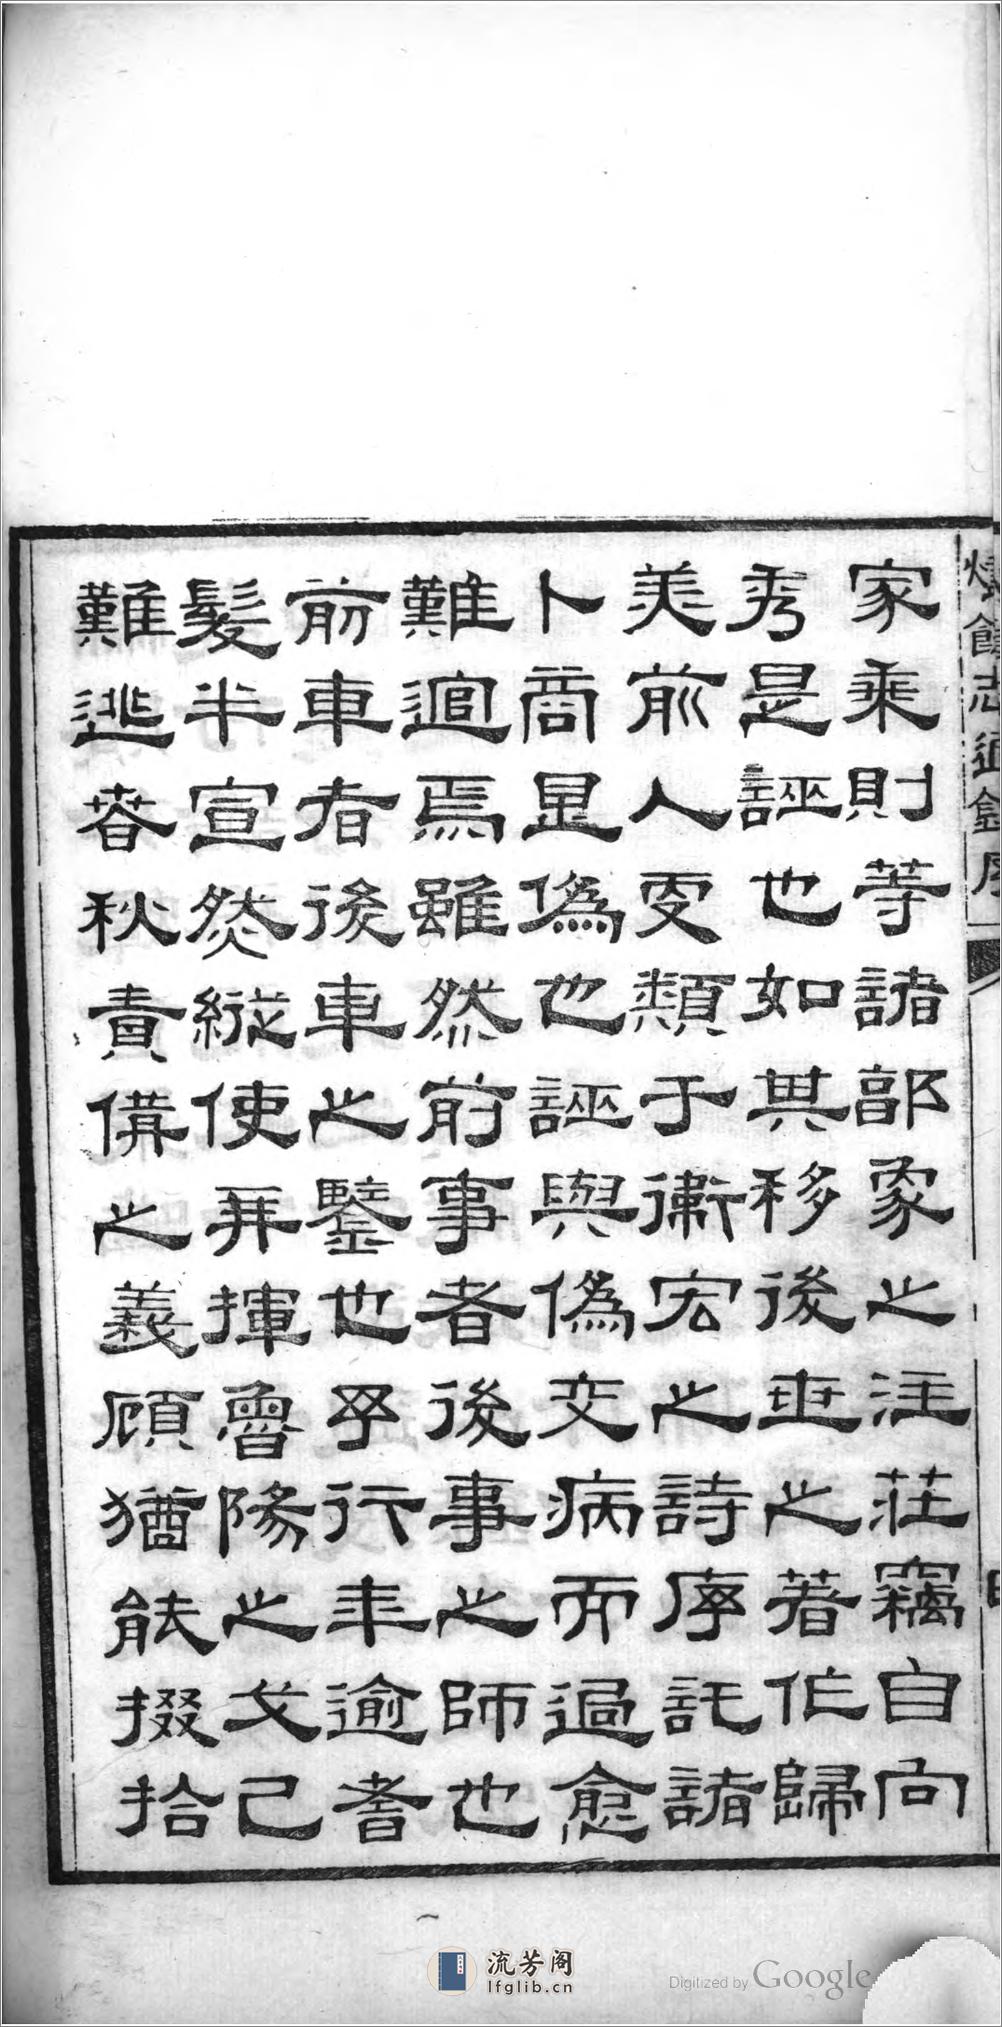 家乘則等諸部家之注莊竊自向
秀是誣也如其移後世之著作歸
美前人更類于衛宏之詩序託諸
卜商是偽也誣與偽交病而過愈
難逭焉雖然前事者後事之師也
前車者後車之鑒也予行年逾耆
髮半宣然縱使再揮魯陽之戈已
難逃春秋責備之義顧猶能掇拾
餘志
流芳阁
lfglib.cn
Digitized by Google